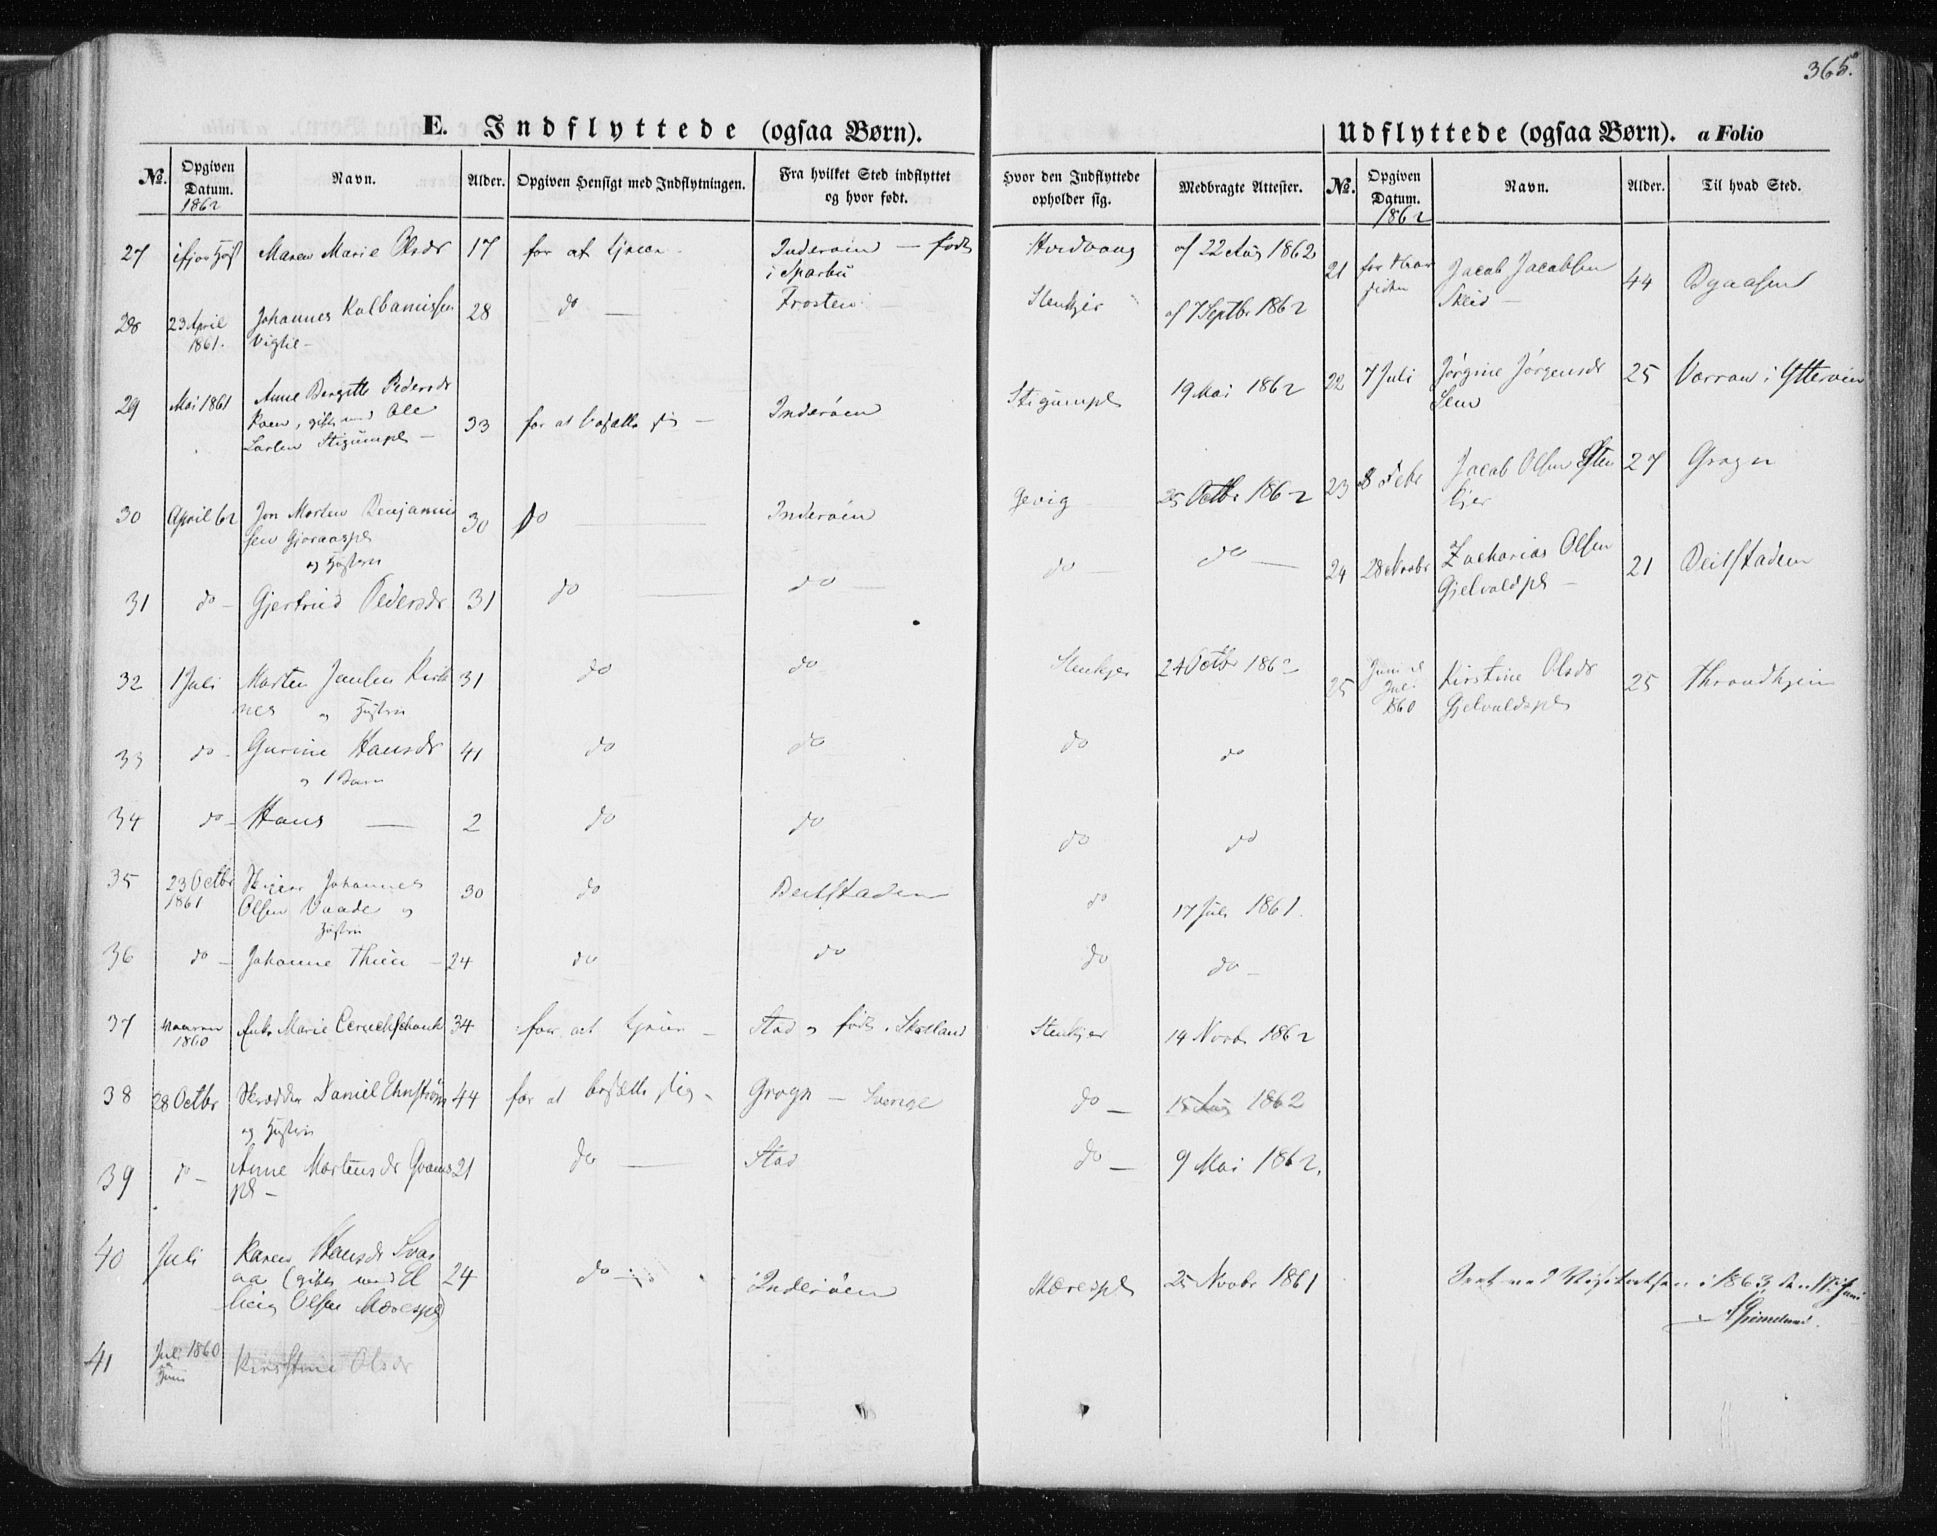 365.
E. Indflyttede (ogsaa Børn).
Udflyttede (ogsaa Børn). a Folio
No. Opgiven Datum. 1862 Navn. Alder. Opgiven Hensigt med Indflytningen. Fra hvilket Sted indflyttet og hvor født. Hvor den Indflyttede opholder sig. Medbragte Attester.
No. Opgiven Datum. 1862 Navn. Alder. Til hvad Sted.
27 Maren Marie Olsdr 17 for at tjene Inderøen — født Hvidvang af 22 Aug 1862
i Sparbu
28 23 April Johannes Kolbanussen 28 do — Frosten Stenkjer af 7 Septbr 1862
1861. Vigtil —
29 Mai 1861 Anne Bergitte Pedersdr
gift med Ole 33 for at bosætte sig — Inderøen Stigumpl 19 Mai 1862
Larsen Stigumpl —
30 April 62 Jon Morten Benjamin 30 do — Inderøen Gevig 25 Octbr 1862
sen
og Hustru
31 do — Gjertrud Pedersdr 31 do — do — do — do —
32 1 Juli Morten Jansen Kirk 31 do do Stenkjer 24 Octbr 1862
nes og Hustru
33 do — Gurine Hansdr 41 do do do do
og 1 Barn
34 do — Hans — 2 do do do do
35 23 Octbr Johannes 30 do Beitstaden do 17 Juli 1861.
1861 Olsen Vaade og
Hustru
36 do — Johanne Thien — 24 do do do do —
37 1860 Marie 34 for at tjene — Stad og født i Skotland Stenkjer 14 Novbr 1862
38 28 Octbr Skrædder Daniel Ehnström 44 for at bosætte sig — Grogn — Sverige do — 15 Aug 1862
og Hustru
39 do — Anne Mortensdr Qvams 21 do — Stad do — 9 Mai 1862.
pl —
40 Juli Karen Hansdr Svar
aa (gift med El 24 do — Inderøen Mærespl 25 Novbr 1861
ling Olsen Mærespl)
41 Juli 1860 Kirstine Olsdr
Juni
21 for Jacob Jacobsen 44
siden Skei —
22 7 Juli Jørgine Jørgensdr 25 Værran i Ytterøen
Sem
23 8 Febr Jacob Olsen Sten 27 Grogn
kjer
24 28 Novbr Zacharias Olsen 21 Beitstaden
Gjelvoldpl —
25 Juni el Kirstine Olsdr 25 Throndhjem
Juli Gjelvoldspl
1860
ved Visitatsen i 1863, den 11te Juni